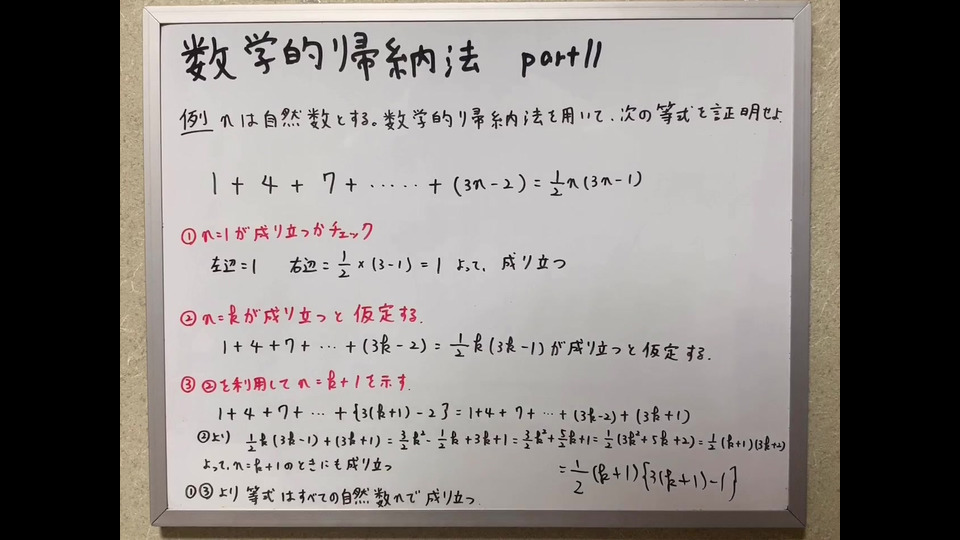 数学的帰納法 part11
例 nは自然数とする。数学的帰納法を用いて、次の等式を証明せよ
1 + 4 + 7 + ‥‥‥ + (3n-2) = 1/2 n(3n-1)
① n=1が成り立つかチェック
左辺=1 右辺= 1/2 × (3-1) = 1 よって、成り立つ
② n=kが成り立つと仮定する.
1+4+7+ … +(3k-2) = 1/2 k(3k-1)が成り立つと仮定する.
③ ②を利用して n=k+1を示す.
1+4+7+ … +{3(k+1)-2} = 1+4+7+ … +(3k-2)+(3k+1)
②より 1/2 k(3k-1)+(3k+1) = 3/2 k² - 1/2 k+3k+1 = 3/2 k² + 5/2 k+1 = 1/2 (3k²+5k+2) = 1/2 (k+1)(3k+2)
= 1/2 (k+1){3(k+1)-1}
よって、n=k+1のときにも成り立つ
①③より等式はすべての自然数nで成り立つ.